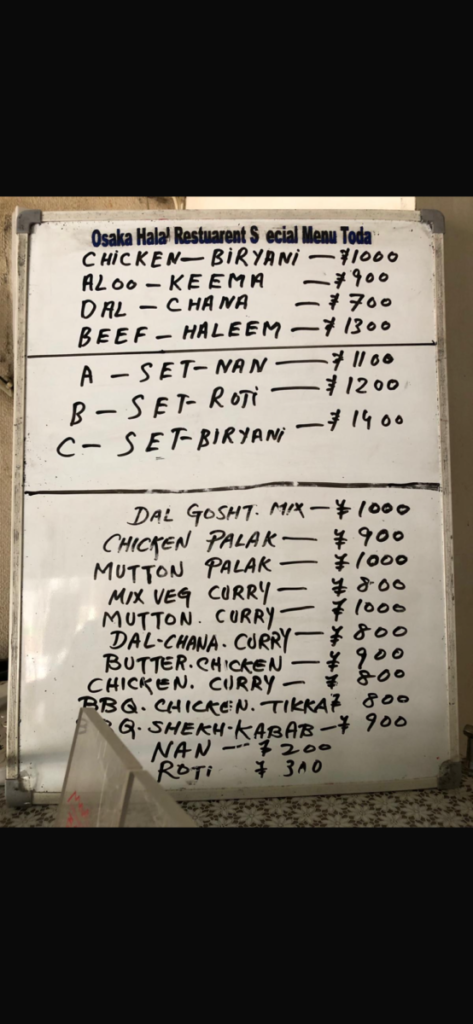 Osaka Halal Restuarent S ecial Menu Toda
CHICKEN - BIRYANI - ¥1000
ALOO - KEEMA - ¥900
DAL - CHANA - ¥700
BEEF - HALEEM - ¥1300
A - SET - NAN - ¥1100
B - SET - ROTI - ¥1200
C - SET - BIRYANI - ¥1400
DAL GOSHT. MIX - ¥1000
CHICKEN PALAK - ¥900
MUTTON PALAK - ¥1000
MIX VEG CURRY - ¥800
MUTTON. CURRY - ¥1000
DAL-CHANA. CURRY - ¥800
BUTTER. CHICKEN - ¥900
CHICKEN. CURRY - ¥800
BBQ. CHICKEN. TIKKA ¥800
BBQ. SHEKH-KABAB - ¥900
NAN --- ¥200
ROTI ¥300